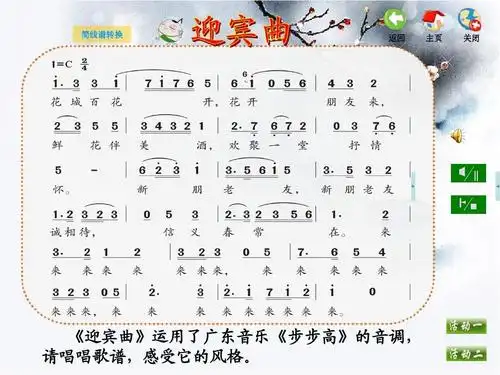 简线谱转换
迎宾曲
返回 主页 关闭
1=C 2/4
1. 3 3 1 7 1 7 6 5 6 1 0 5 6 4 3 2
花城百花 开,花开 朋友来,
2 3 5 5 3 4 3 2 1 2. 7 6 7 2 0 3 7 6
鲜花伴美 酒,欢聚一堂 抒情
5 - 6 2 3 1 3. 5 6 1 5 1 3. 5 3 2
怀。 新朋老 友,新朋老友
1. 2 3 2 3 0 5 3 2. 3 2 3 5 6 1. 2
诚相待, 信义春常 在。 来
3. 2 1 2 3 2 3 0 5 7. 6 5 4
来来来来 来来来, 来来来来
3 2 3 0 5 2. 3 2. 3 1 2 1 0
来来来,来 来来来来来来。
《迎宾曲》运用了广东音乐《步步高》的音调,
请唱唱歌谱,感受它的风格。
活动一
活动二